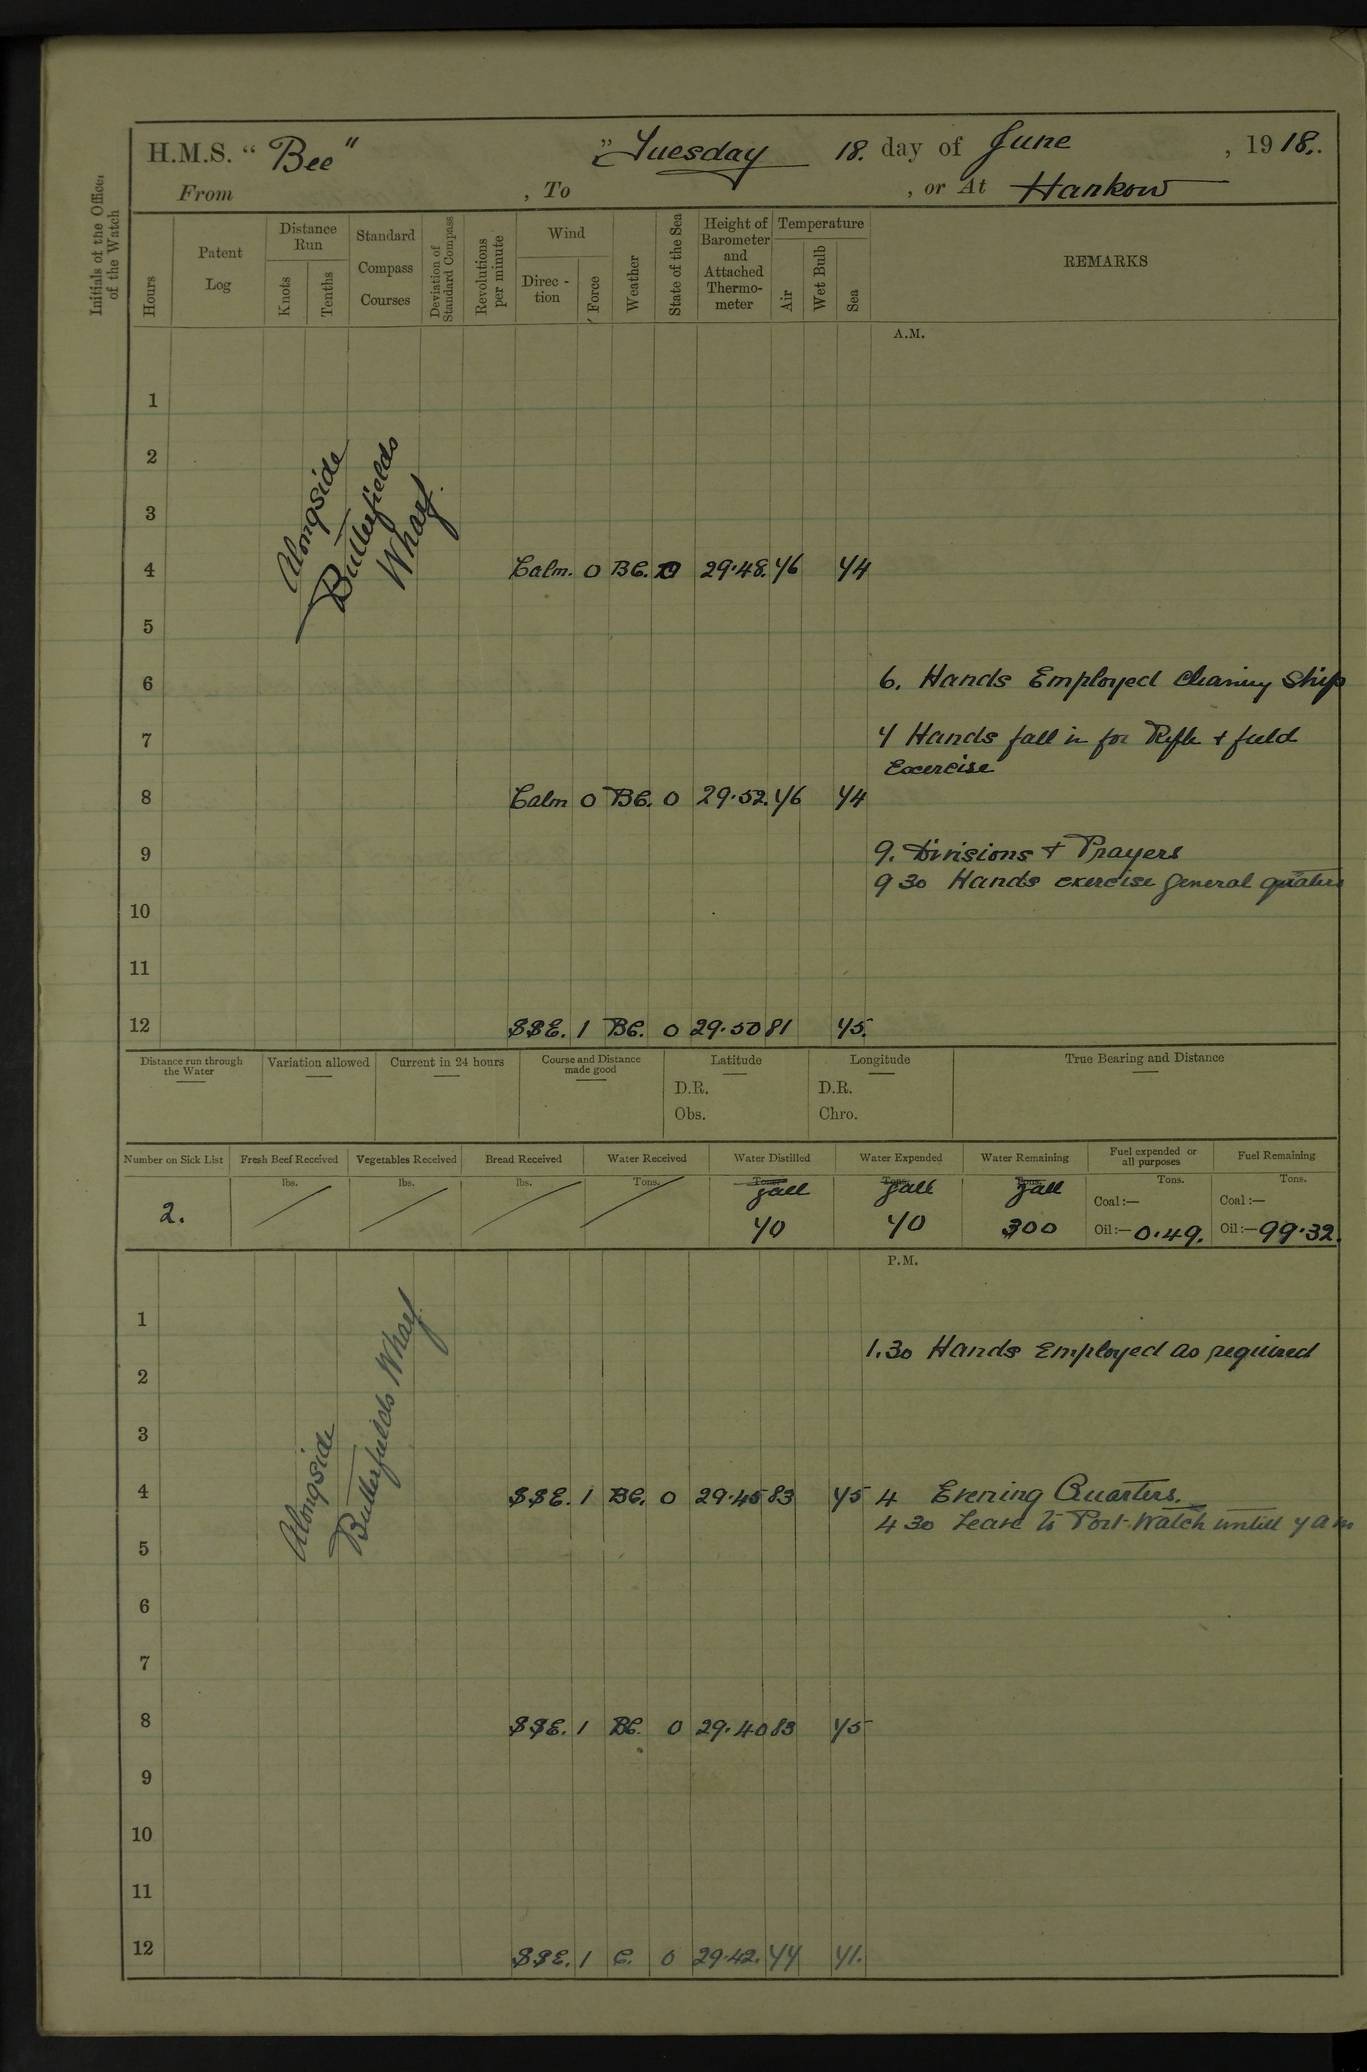 H.M.S. “ Bee ” „ Tuesday 18. day of June , 1918.
From , To , or At Hankow
Initials of the Officer of the Watch
Hours
Patent Log
Distance Run
Knots
Tenths
Standard Compass Courses
Deviation of Standard Compass
Revolutions per minute
Wind
Direc-tion
Force
Weather
State of the Sea
Height of Barometer and Attached Thermo-meter
Temperature
Air
Wet Bulb
Sea
REMARKS
A.M.
1
2
3
Alongside
Butterfields
Wharf.
4 Calm. 0 BC. 0 29.48. 76 74
5
6 6. Hands Employed cleaning Ship
7 7 Hands fall in for Rifle + field
Exercise
8 Calm 0 BC. 0 29.52. 76 74
9 9. Divisions + Prayers
9 30 Hands exercise general quaters
10
11
12 SSE. 1 BC. 0 29.50 81 75.
Distance run through the Water
Variation allowed
Current in 24 hours
Course and Distance made good
Latitude
D.R.
Obs.
Longitude
D.R.
Chro.
True Bearing and Distance
Number on Sick List
Fresh Beef Received
Vegetables Received
Bread Received
Water Received
Water Distilled
Water Expended
Water Remaining
Fuel expended or all purposes
Fuel Remaining
lbs. lbs. lbs. Tons. Tons. Tons. Tons. Tons. Tons.
gall gall gall Coal:— Coal:—
2. 70 70 300 Oil:— 0.49. Oil:— 99.32.
P.M.
1
1.30 Hands Employed as required
2
3
Alongside
Butterfields Wharf.
4 SSE. 1 BC. 0 29.45 83 75 4 Evening Quarters.
4 30 Leave to Port Watch untill 7 am
5
6
7
8 SSE. 1 BC. 0 29.40 83 75
9
10
11
12 SSE. 1 C. 0 29.42. 77 71.